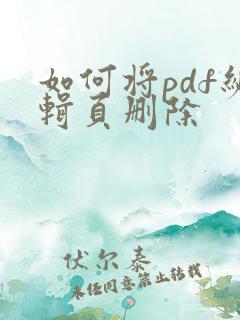 如何将pdf编
辑页删除
伏尔泰
未经同意禁止转载